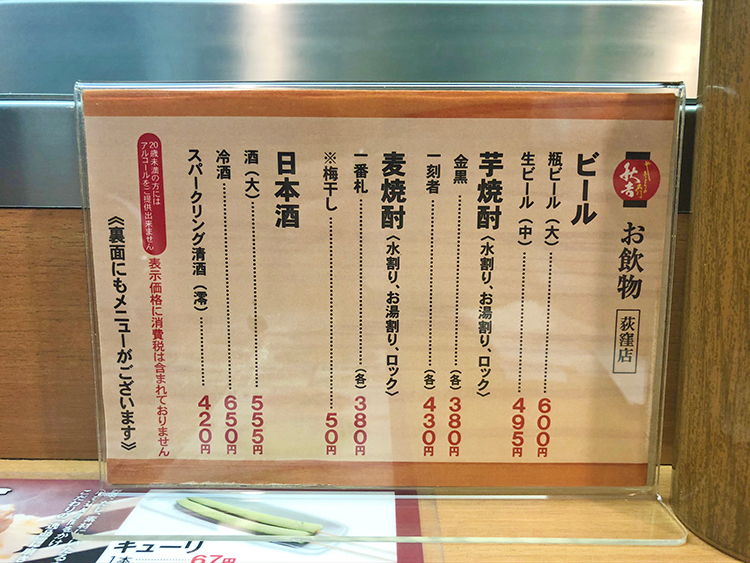 秋吉
お飲物
荻窪店
ビール
瓶ビール(大)……600円
生ビール(中)……495円
芋焼酎(水割り、お湯割り、ロック)
金黒……(各)380円
一刻者……(各)430円
麦焼酎(水割り、お湯割り、ロック)
一番札……(各)380円
※梅干し……50円
日本酒
酒(大)……555円
冷酒……650円
スパークリング清酒(澪)……420円
20歳未満の方には
アルコールをご提供出来ません
表示価格に消費税は含まれておりません
《裏面にもメニューがございます》
キューリ
1本 67円